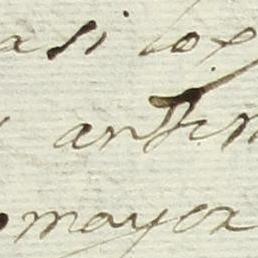 asi lo
antim
mayor